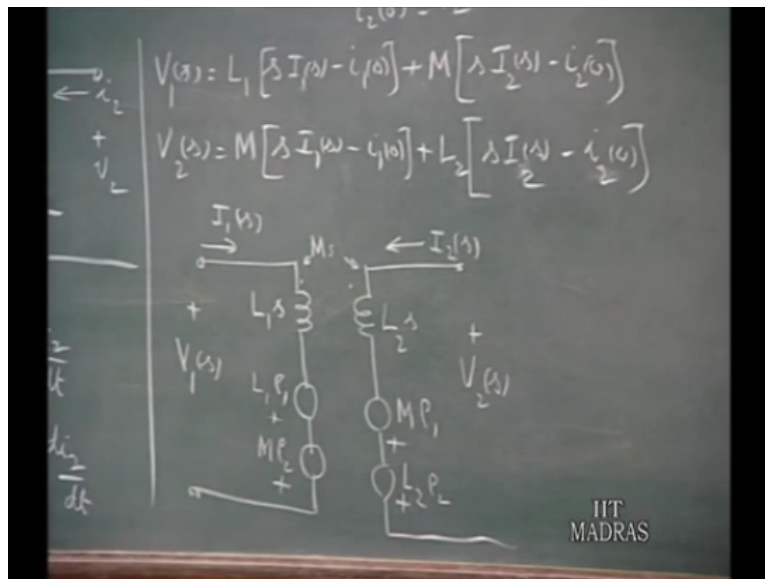 i₂(0) =
V₁(s) = L₁ [s I₁(s) - i₁(0)] + M [s I₂(s) - i₂(0)]
V₂(s) = M [s I₁(s) - i₁(0)] + L₂ [s I₂(s) - i₂(0)]
← i₂
+
V₂
I₁(s)
→ Ms ← I₂(s)
+ L₁s L₂s +
V₁(s) V₂(s)
L₁ρ₁ Mρ₁
+ +
Mρ₂ L₂ρ₂
+ +
di₂
dt
IIT
MADRAS